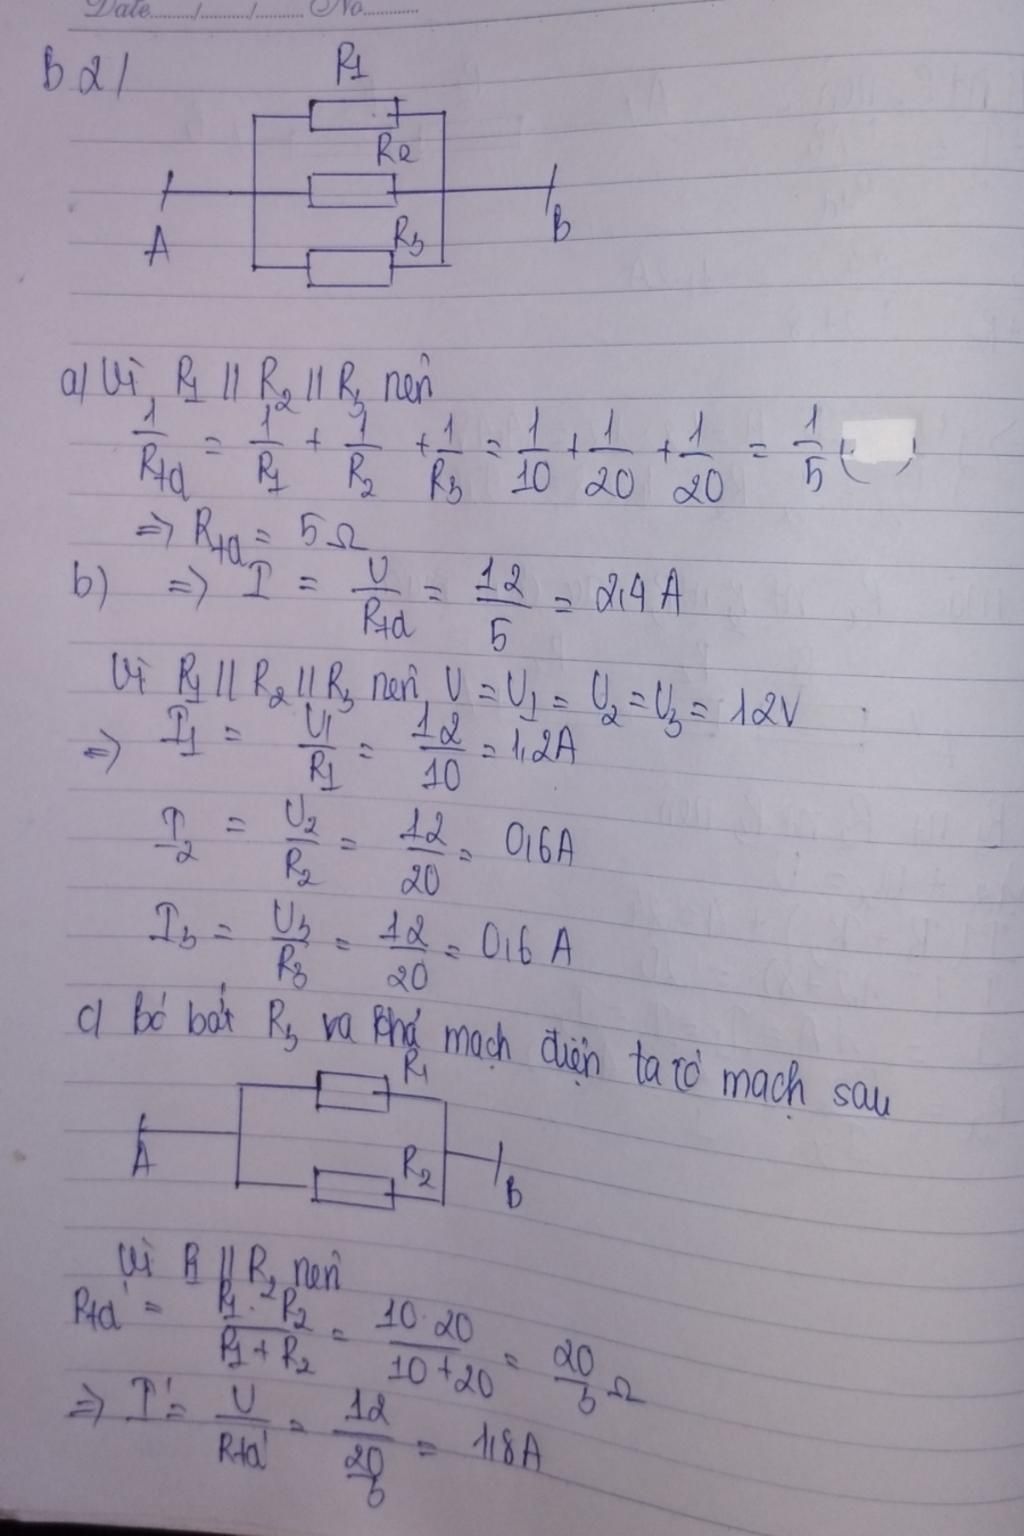 Date.........../.........../........... No...........
B 2/
R1
R2
R3
A
B
a/ Vì R1 // R2 // R3 nên
1/Rtđ = 1/R1 + 1/R2 + 1/R3 = 1/10 + 1/20 + 1/20 = 1/5 ( )
=> Rtđ = 5Ω
b) => I = U/Rtđ = 12/5 = 2,4 A
Vì R1 // R2 // R3 nên U = U1 = U2 = U3 = 12V
=> I1 = U1/R1 = 12/10 = 1,2A
I2 = U2/R2 = 12/20 = 0,6A
I3 = U3/R3 = 12/20 = 0,6 A
c/ Bỏ bớt R3 ra khỏi mạch điện ta có mạch sau
R1
A
R2
B
Vì R1 // R2 nên
Rtđ' = R1.R2/R1+R2 = 10.20/10+20 = 20/3 Ω
=> I' = U/Rtđ' = 12/20/3 = 1,8A